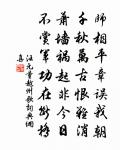 師相平章誤我朝
千秋萬古恨難消
蕭墻禍起非今日
不賞軍功在斷橋
汪元量越州歌詞典網